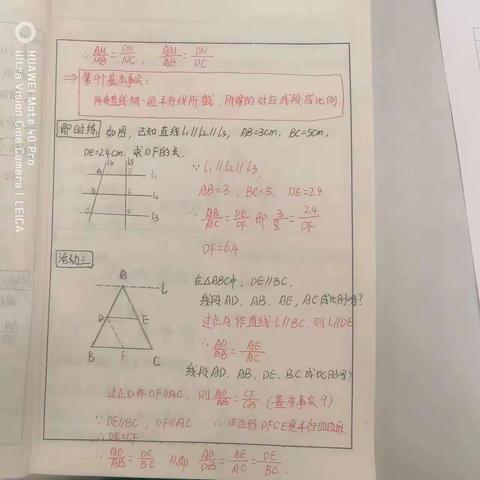 ∴ AM/MB = DN/NC, AM/AB = DN/DC
⇒ 第9个基本事实:
两条直线被一组平行线所截,所得的对应线段成比例.
即时练 如图,已知直线l₁∥l₂∥l₃, AB=3cm, BC=5cm,
DE=2.4cm. 求DF的长.
l₄ l₅
A D l₁
B E l₂
C F l₃
∵ l₁∥l₂∥l₃,
AB=3, BC=5, DE=2.4
∴ AB/AC = DE/DF 即 3/8 = 2.4/DF
DF=6.4
活动二
A L
D E
B F C
在△ABC中, DE∥BC,
线段AD、AB、AE、AC成比例吗?
过点A作直线L∥BC, 则L∥DE.
∴ AD/AB = AE/AC
线段AD、AB、DE、BC成比例吗?
过点D作DF∥AC, 则 AD/AB = CF/CB (基本事实9)
∵ DE∥BC, DF∥AC ∴ 四边形DFCE是平行四边形
∴ DE=CF
∴ AD/AB = DE/BC 从而 AD/DB = AE/AC = DE/BC.
HUAWEI Mate 40 Pro
Ultra Vision Cine Camera | LEICA